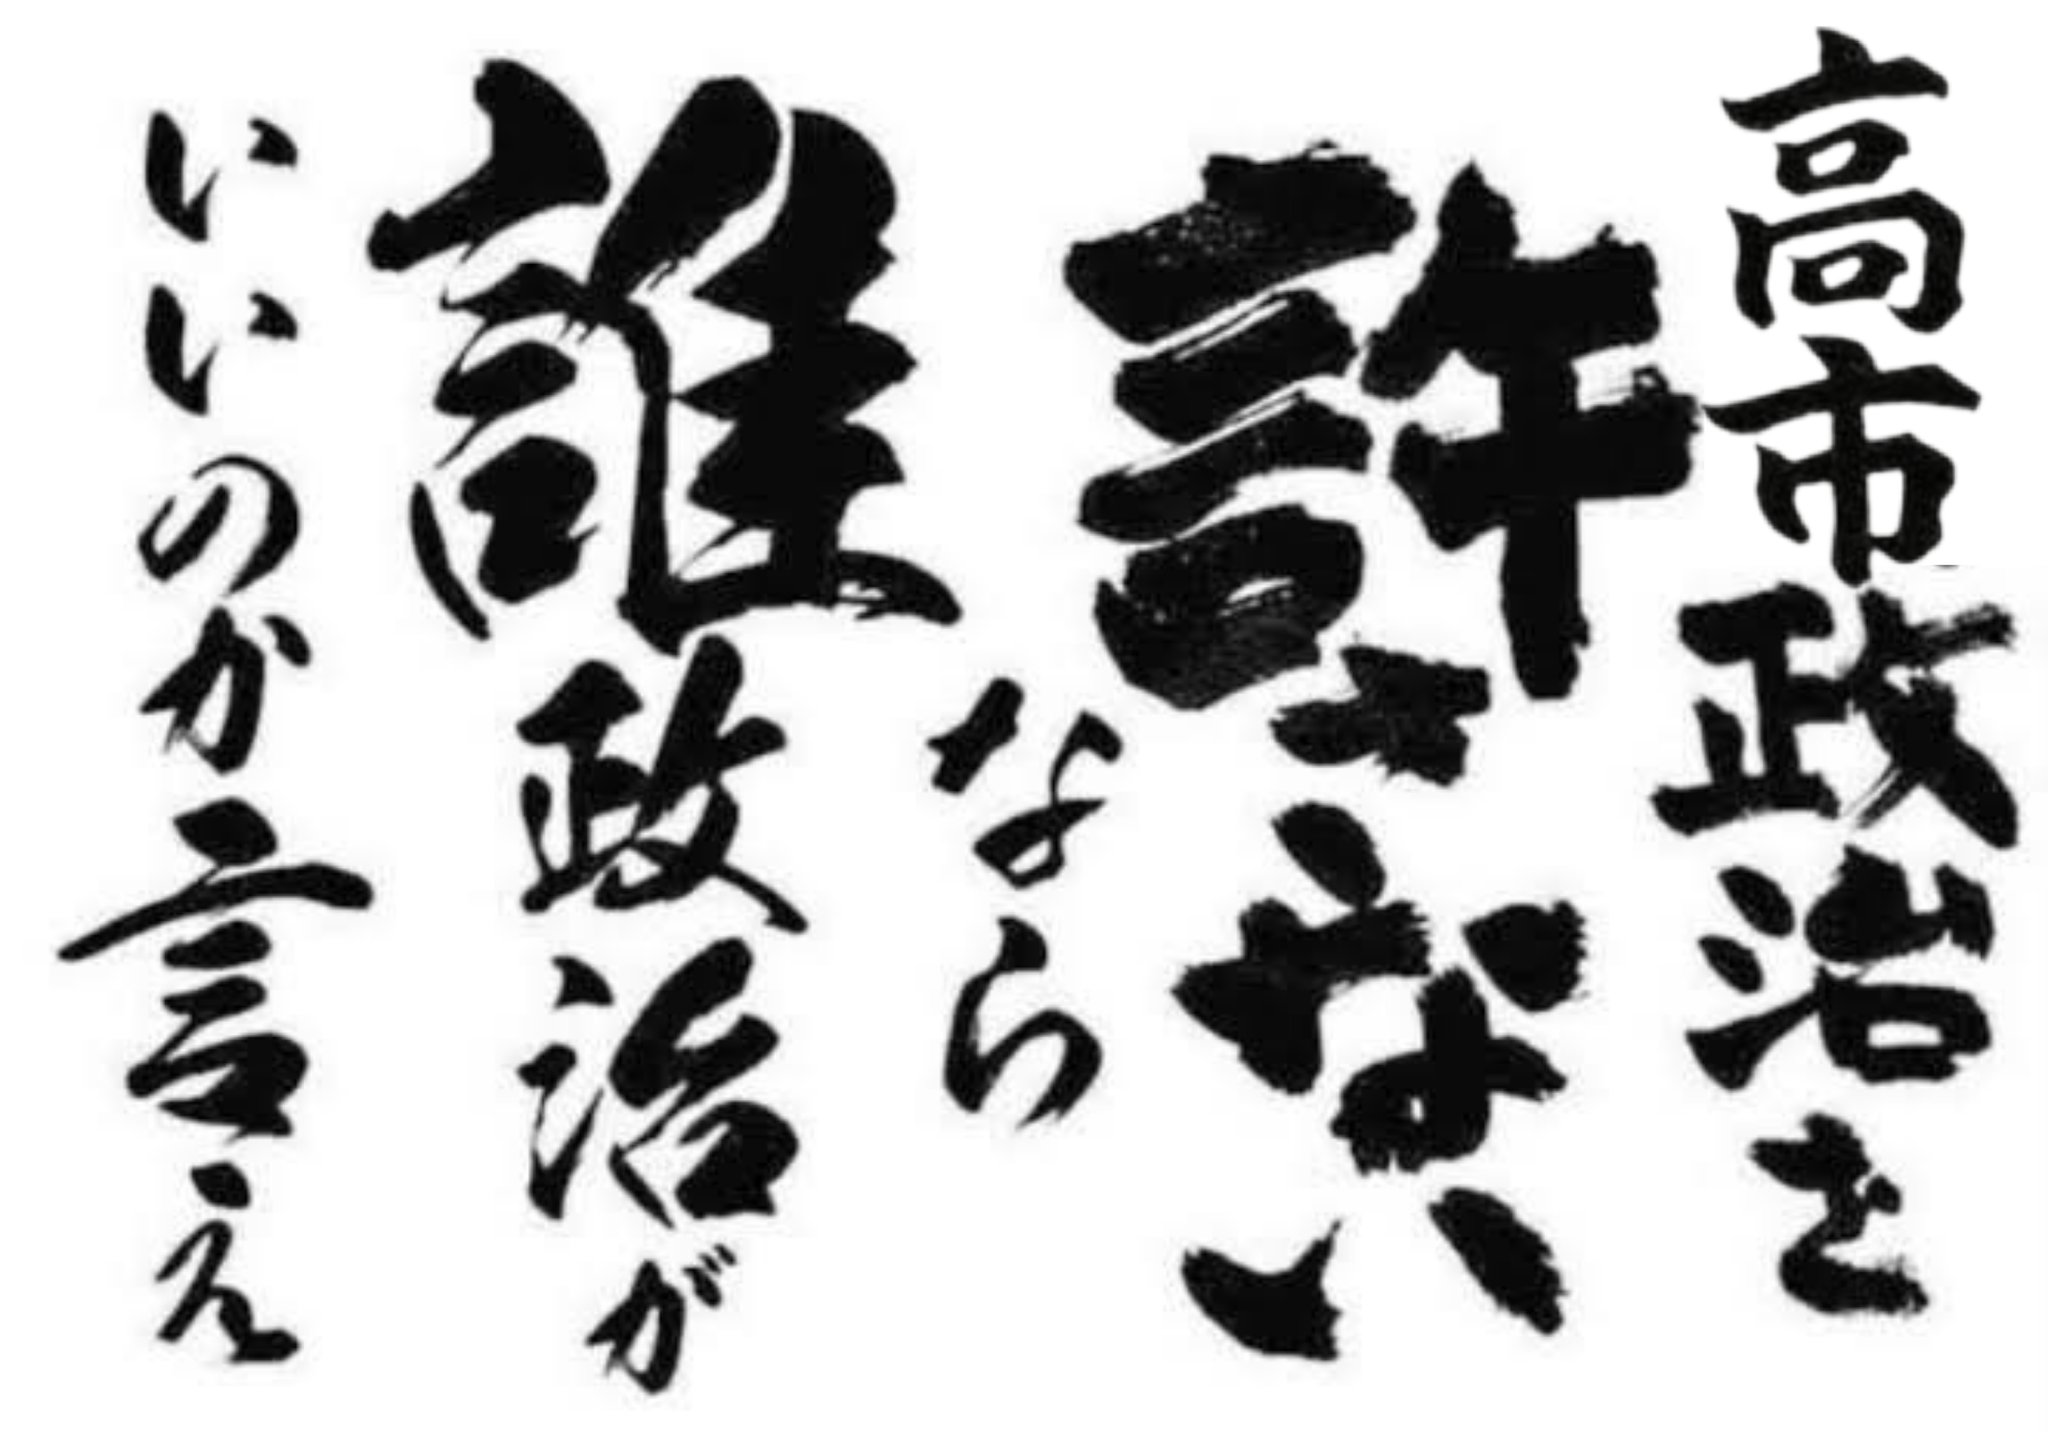 高市政治を
許さない
なら
誰政治が
いいのか言え